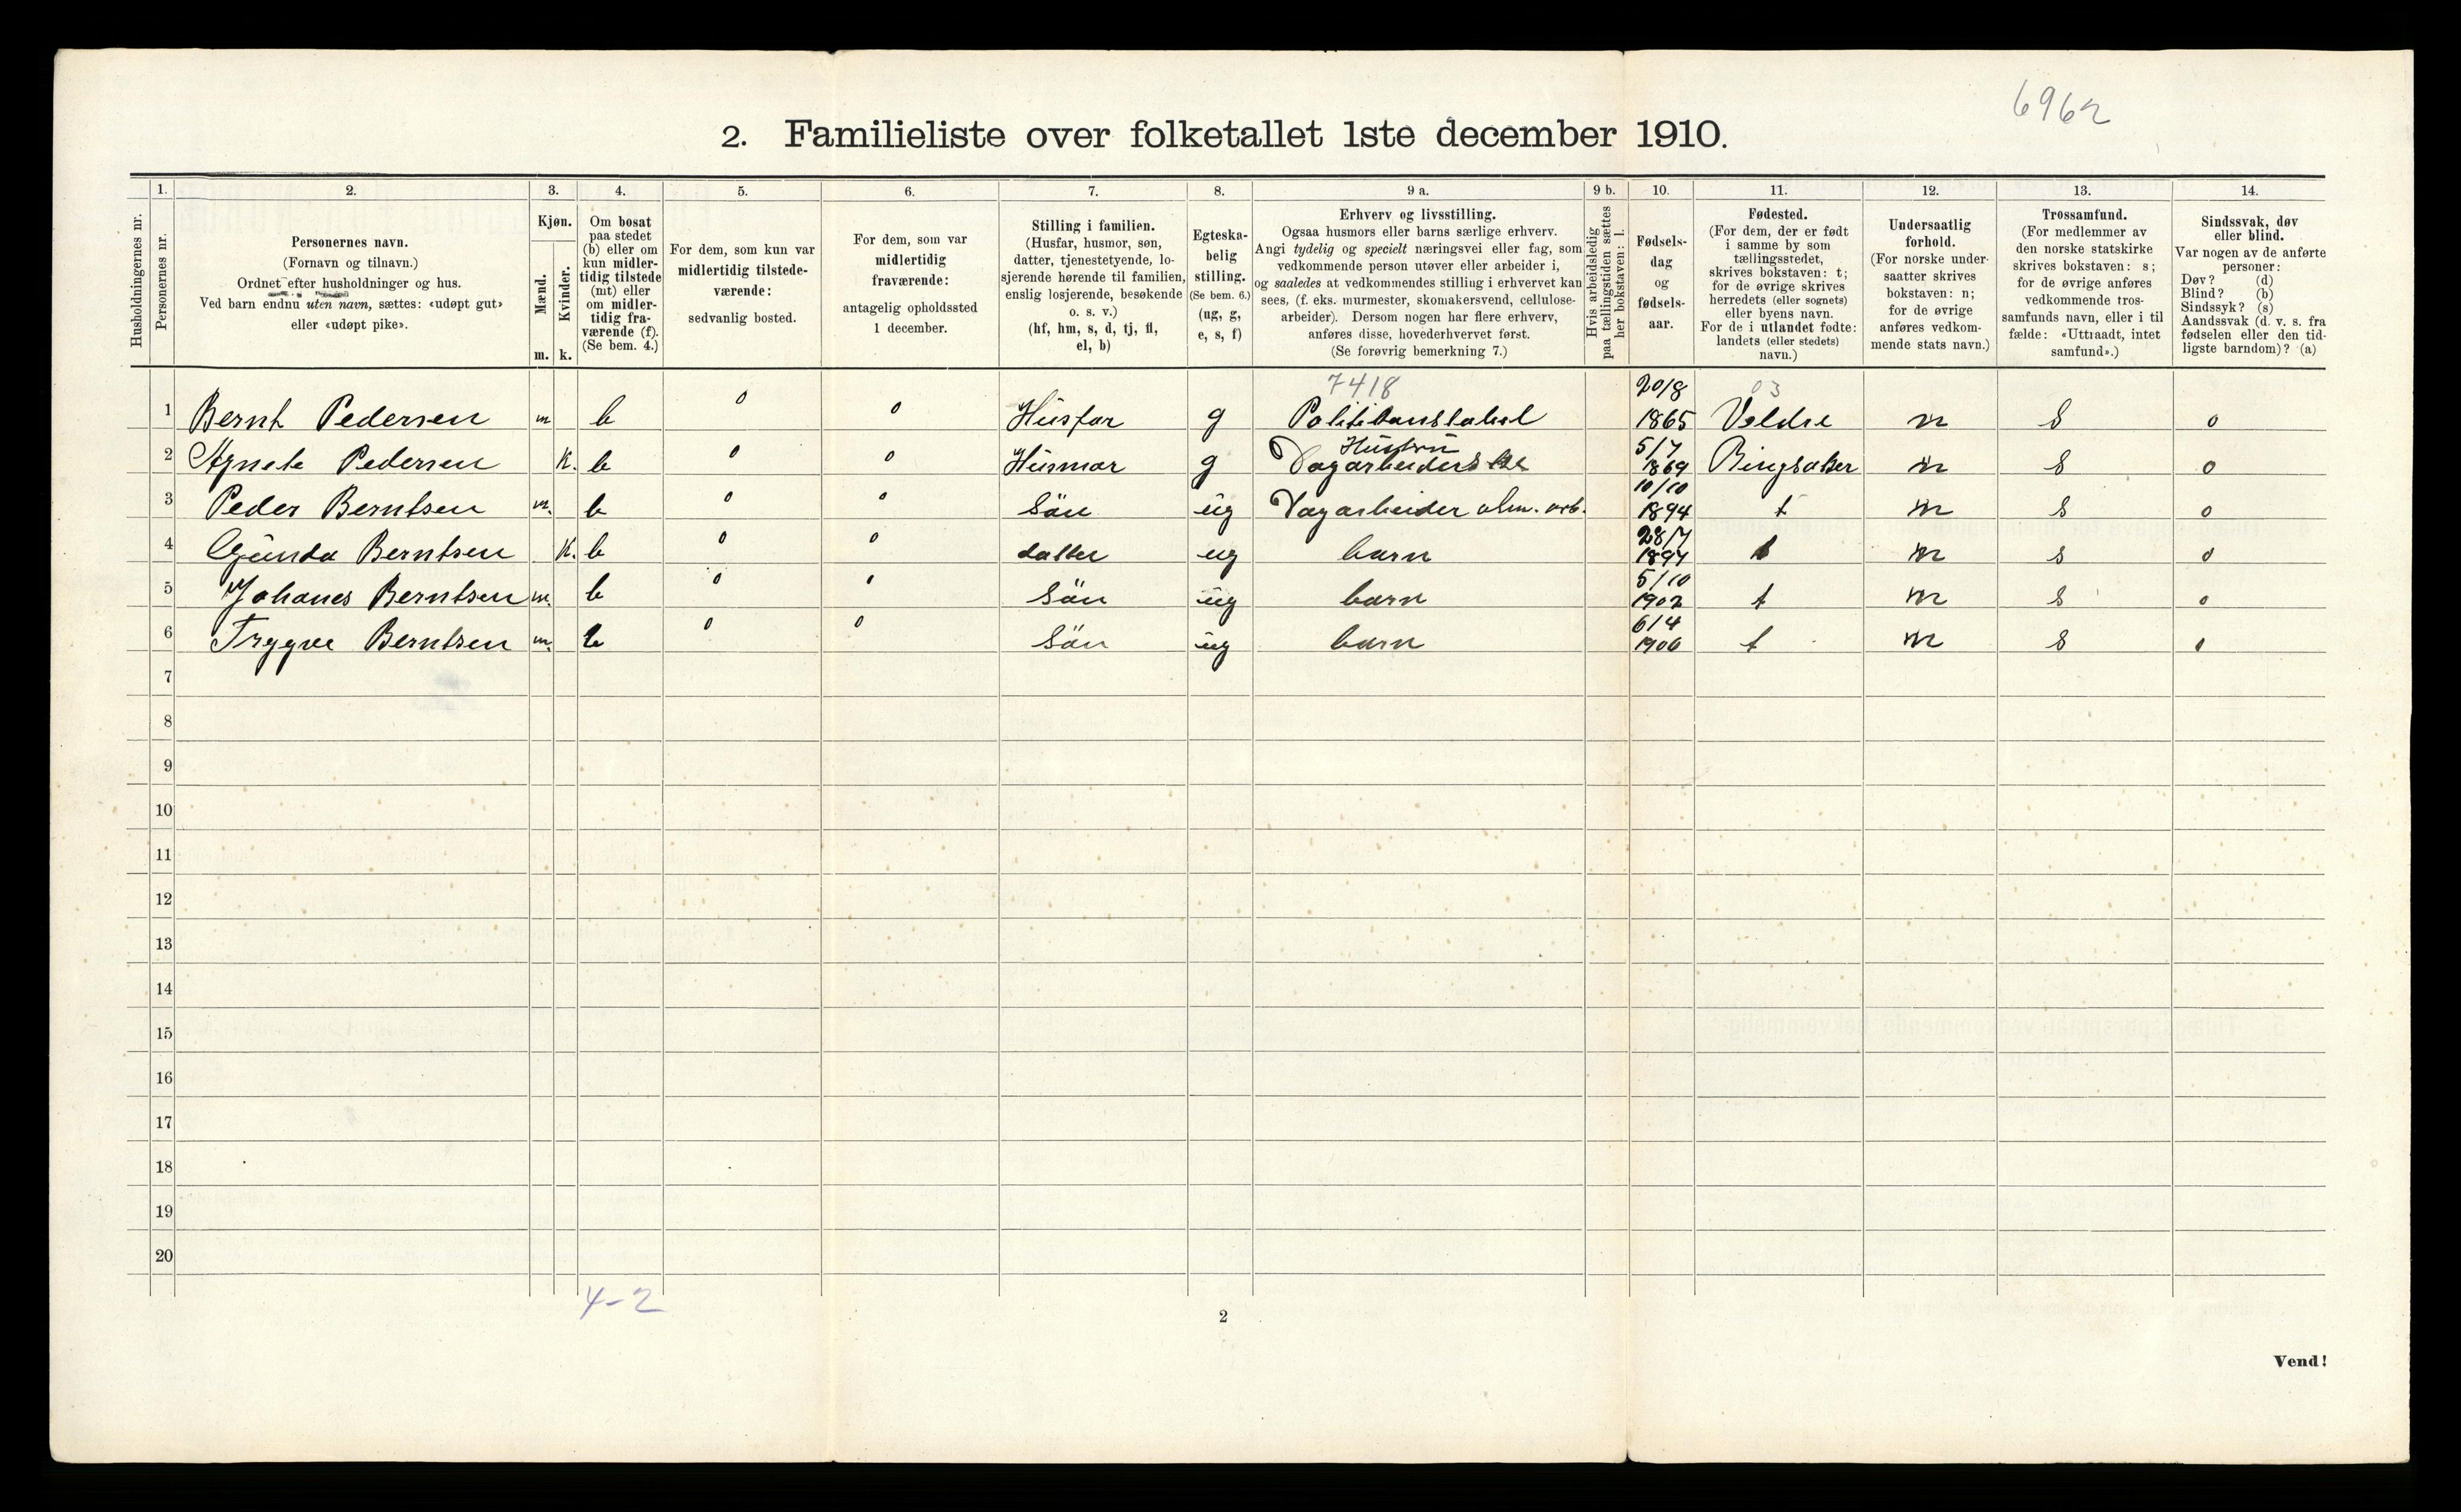 6962
2. Familieliste over folketallet 1ste december 1910.
Husholdningernes nr.
1.
Personernes nr.
2.
Personernes navn.
(Fornavn og tilnavn.)
Ordnet efter husholdninger og hus.
Ved barn endnu uten navn, sættes: «udøpt gut»
eller «udøpt pike».
3.
Kjøn.
Mænd.
Kvinder.
m. k.
4.
Om bosat
paa stedet
(b) eller om
kun midler-
tidig tilstede
(mt) eller
om midler-
tidig fra-
værende (f).
(Se bem. 4.)
5.
For dem, som kun var
midlertidig tilstede-
værende:
sedvanlig bosted.
6.
For dem, som var
midlertidig
fraværende:
antagelig opholdssted
1 december.
7.
Stilling i familien.
(Husfar, husmor, søn,
datter, tjenestetyende, lo-
sjerende hørende til familien,
enslig losjerende, besøkende
o. s. v.)
(hf, hm, s, d, tj, fl,
el, b)
8.
Egteska-
belig
stilling.
(Se bem. 6.)
(ug, g,
e, s, f)
9 a.
Erhverv og livsstilling.
Ogsaa husmors eller barns særlige erhverv.
Angi tydelig og specielt næringsvei eller fag, som
vedkommende person utøver eller arbeider i,
og saaledes at vedkommendes stilling i erhvervet kan
sees, (f. eks. murmester, skomakersvend, cellulose-
arbeider). Dersom nogen har flere erhverv,
anføres disse, hovederhvervet først.
(Se forøvrig bemerkning 7.)
9 b.
Hvis arbeidsledig
paa tællingstiden sættes
her bokstaven: l.
10.
Fødsels-
dag
og
fødsels-
aar.
11.
Fødested.
(For dem, der er født
i samme by som
tællingsstedet,
skrives bokstaven: t;
for de øvrige skrives
herredets (eller sognets)
eller byens navn.
For de i utlandet fødte:
landets (eller stedets)
navn.)
12.
Undersaatlig
forhold.
(For norske under-
saatter skrives
bokstaven: n;
for de øvrige
anføres vedkom-
mende stats navn.)
13.
Trossamfund.
(For medlemmer av
den norske statskirke
skrives bokstaven: s;
for de øvrige anføres
vedkommende tros-
samfunds navn, eller i til
fælde: «Uttraadt, intet
samfund».)
14.
Sindssvak, døv
eller blind.
Var nogen av de anførte
personer:
Døv? (d)
Blind? (b)
Sindssyk? (s)
Aandssvak (d. v. s. fra
fødselen eller den tid-
ligste barndom)? (a)
7418 20/8 03
1 Bernt Pedersen m b 0 0 Husfar g Politikonstabel 1865 Veldre n s 0
Hustru 5/7
2 Agnete Pedersen K. b 0 0 Husmor g Dagarbeiders 1869 Ringsaker n s 0
10/10
3 Peder Berntsen m. b 0 0 Sön ug Dagarbeider alm. arb. 1894 t n s 0
28/7
4 Gunda Berntsen K. b 0 0 datter ug barn 1897 t n s 0
5/10
5 Johanes Berntsen m. b 0 0 Sön ug barn 1902 t n s 0
6/4
6 Trygve Berntsen m. b 0 0 Sön ug barn 1906 t n s 0
7
8
9
10
11
12
13
14
15
16
17
18
19
20
4-2
2
Vend!